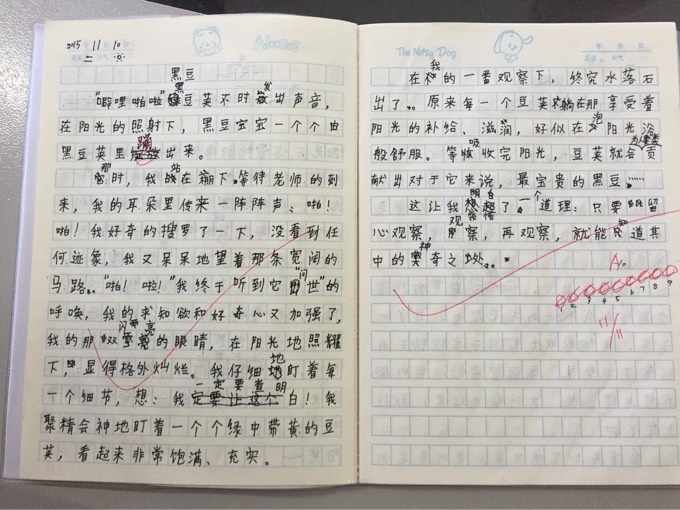 2015 11 10
二
黑豆
"噼里啪啦"绿豆荚不时发出声音，
在阳光的照射下，黑豆宝宝一个个由
黑豆荚里蹦出来。
那时，我站在棚下等待老师的到
来，我的耳朵里传来一阵阵声、啪！
啪！我好奇的搜罗了一下，没看到任
何迹象，我又呆呆地望着那条宽阔的
马路。"啪！啦！"我终于听到它"问世"的
呼唤，我的求知欲和好奇心又加强了，
我的那双闪亮的眼睛，在阳光地照耀
下，显得格外灿烂。我仔细地盯着每
一个细节，想：我一定要查明白！我
聚精会神地盯着一个个绿中带黄的豆
荚，看起来非常饱满、充实。
Always
The Nifty Dog
年 月 日
在我的一番观察下，终究水落石
出了。原来每一个豆荚躺在那享受着
阳光的补给、滋润，好似在泡阳光浴
般舒服。等吸收完阳光，豆荚就会贡
献出对于它来说，最宝贵的黑豆……
这让我明白了一个道理：只要留
心观察，观察，再观察，就能知道其
中的神奇之处。
A.
2 3 4 5 6 7 8 9
11/11